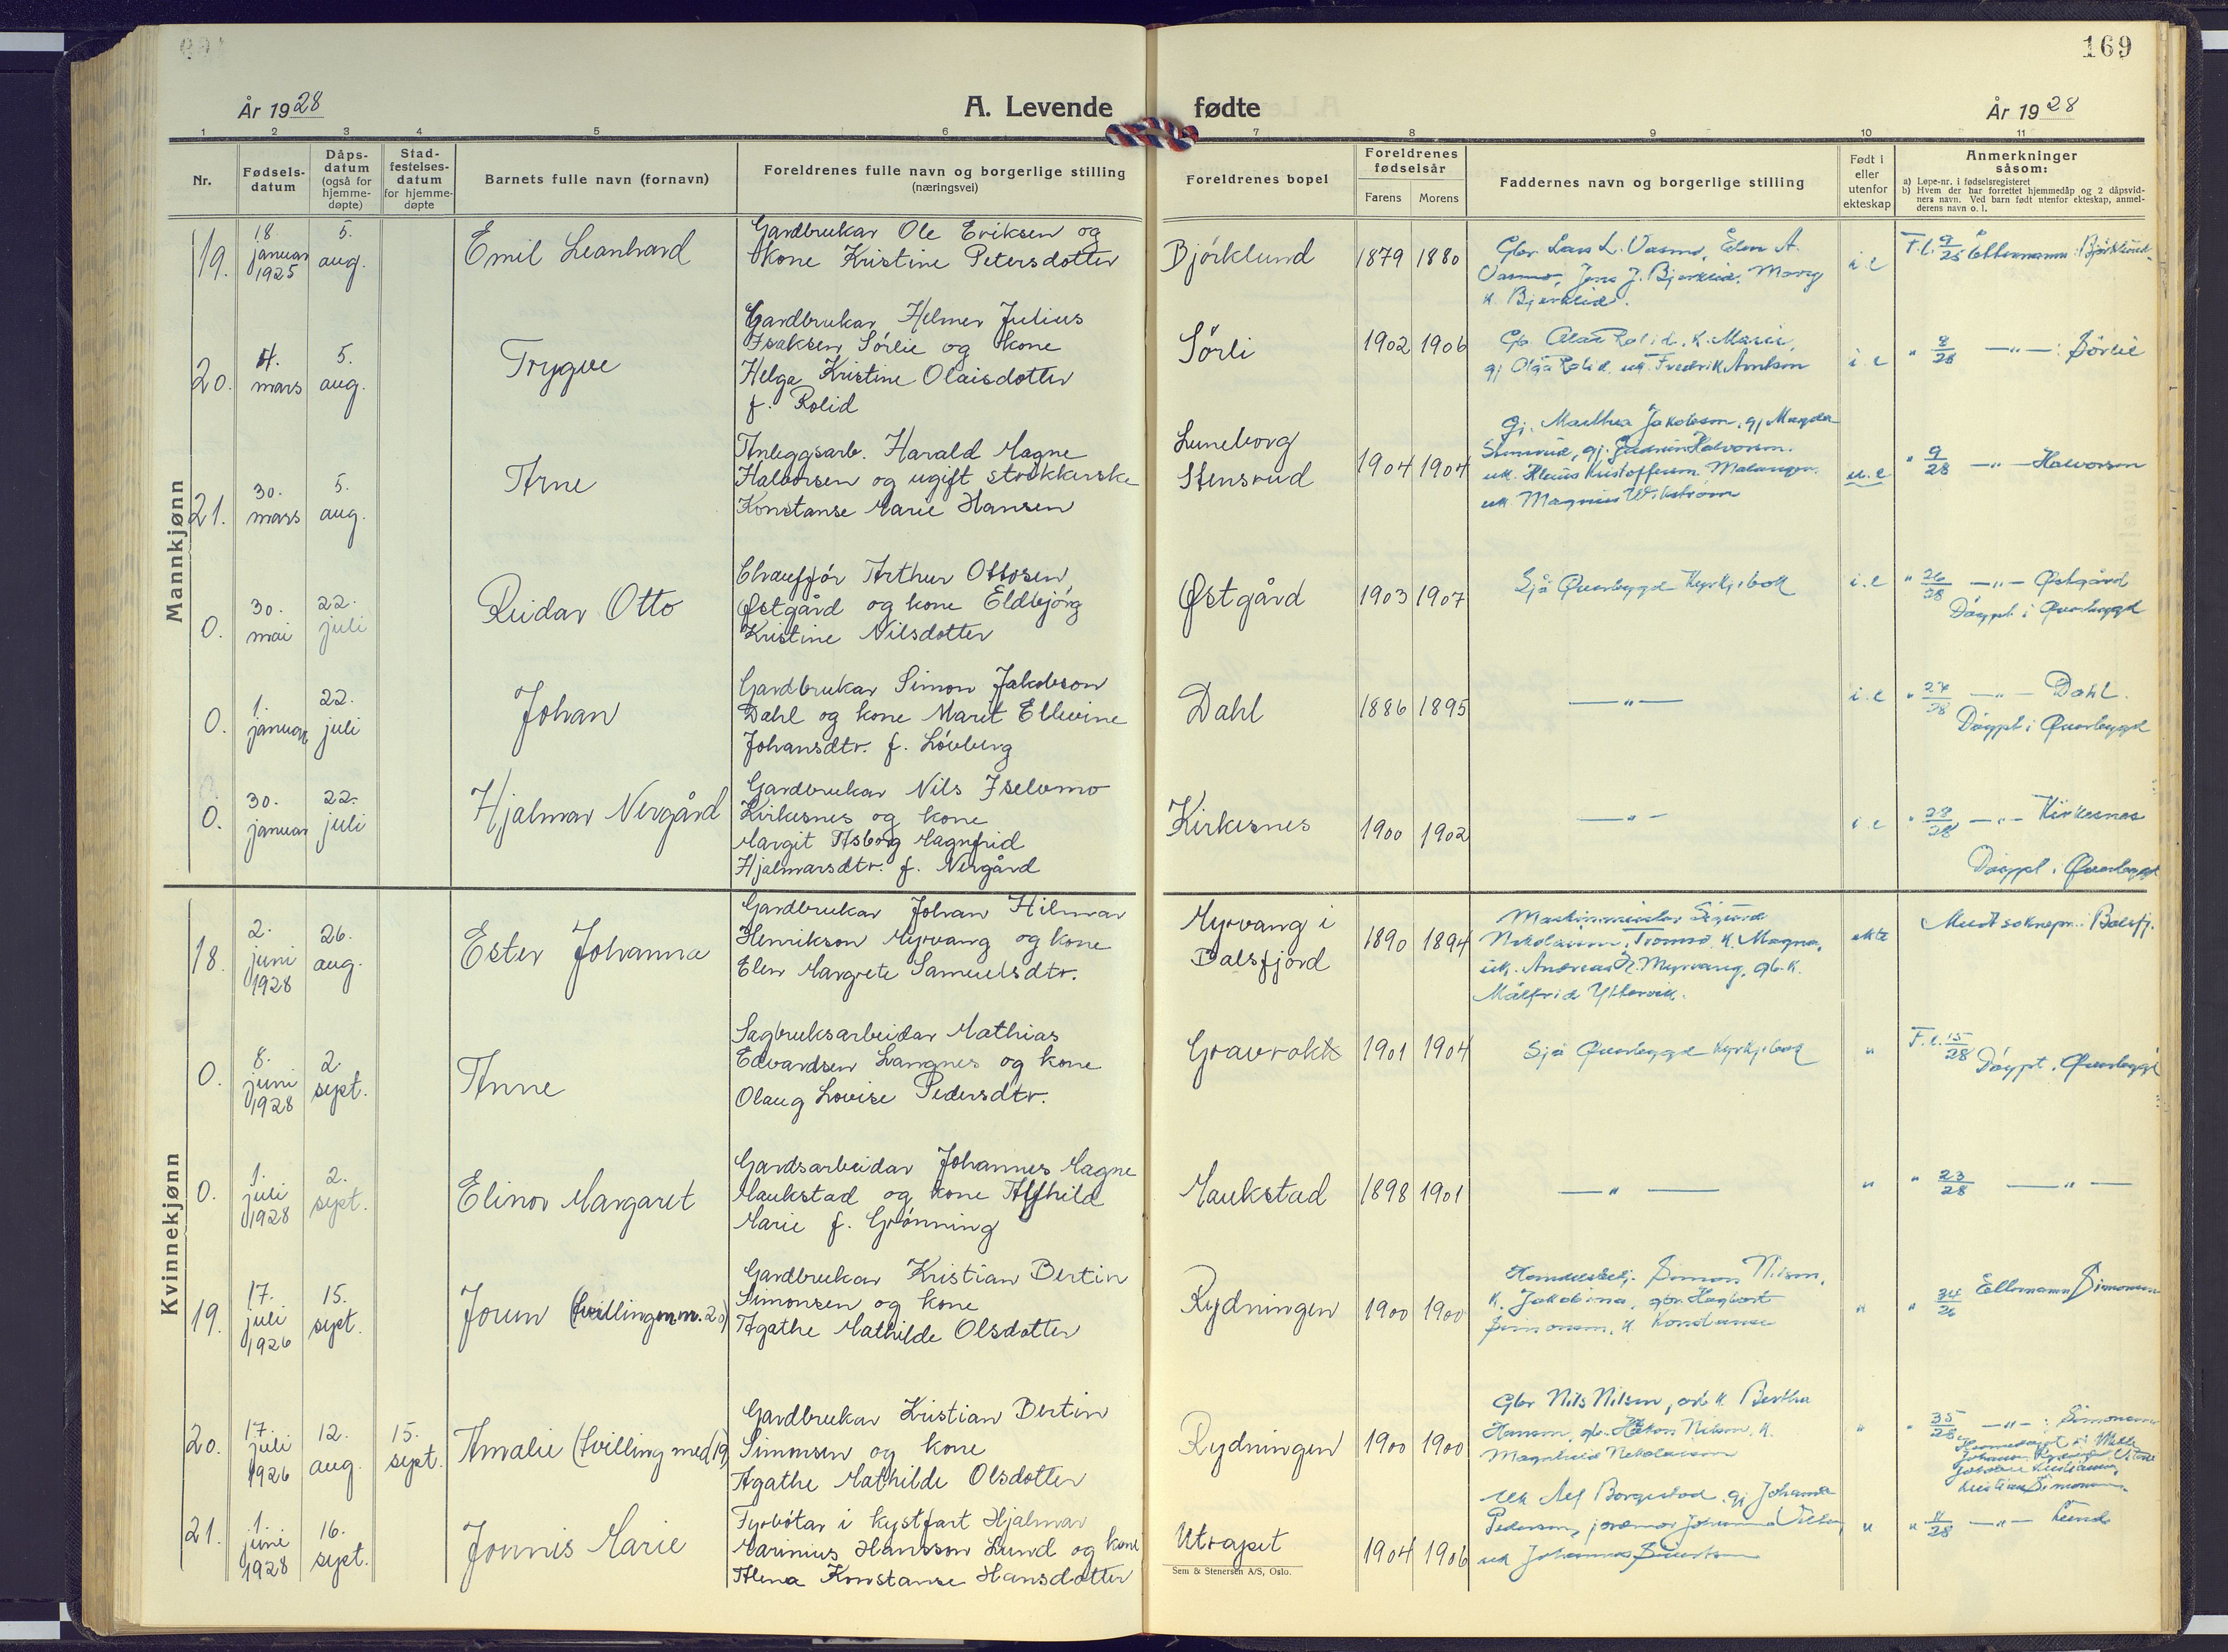 169
År 1928
A. Levende fødte
År 1928
1 2 3 4 5 6 7 8 9 10 11
Nr.
Fødsels-
datum
Dåps-
datum
(også for
hjemme-
døpte)
Stad-
festelses-
datum
for hjemme-
døpte
Barnets fulle navn (fornavn)
Foreldrenes fulle navn og borgerlige stilling
(næringsvei)
Foreldrenes bopel
Foreldrenes
fødselsår
Farens Morens
Faddernes navn og borgerlige stilling
Født i
eller
utenfor
ekteskap
Anmerkninger
såsom:
a) Løpe-nr. i fødselsregisteret
b) Hvem der har forrettet hjemmedåp og 2 dåpsvid-
ners navn. Ved barn født utenfor ekteskap, anmel-
derens navn o. l.
Mannkjønn
19.
18
januar
1925
5.
aug.
Emil Leonhard
Gardbrukar Ole Eriksen og
kone Kristine Petersdotter
Bjørklund
1879 1880
Gbr Lars L. Vasmo, Elen A.
Vasmo, Jens J. Bjerklid,
k. Bjerklid.
i.e
F.l. 9/25 Bjørklund
20.
4.
mars
5.
aug.
Trygve
Gardbrukar Helmer Julius
Isaksen Sørlie og kone
Helga Kristine Olaisdotter
f. Rolid
Sørli
1902 1906
Rolid, k. Marie,
gj Olga Rolid, uk. Fredrik Arntsen
i.e
" 8/28 —"—: Sørlie
21.
30.
mars
5.
aug.
Arne
Anleggsarb. Harald Magne
Halvorsen og ugift strokkerske
Konstanse Marie Hansen
Luneborg
Stensrud
1904 1904
gj. Marthea Jakobsen, gj Magda
Stensrud, gj. Halvorsen.
uk. Kristoffersen Malangen.
uk. Magnus Wikstrøm
u.e
" 9/28 —"— Halvorsen
0.
30.
mai
22.
juli
Reidar Otto
Chauffør Arthur Ottosen
Østgård og kone Eldbjørg
Kristine Nilsdotter
Østgård
1903 1907
Sjå Øverbygd Kyrkjebok
i.e
" 26/28 —"— Østgård
Døypt i Øverbygd
0.
1.
januar
22.
juli
Johan
Gardbrukar Simon Jakobson
Dahl og kone Marit Ellevine
Johansdtr. f. Løvberg
Dahl
1886 1895
—"—
i.e
" 27/28 —"— Dahl.
Døypt i Øverbygd
0.
30.
januar
22.
juli
Hjalmar Nergård
Gardbrukar Nils Iselvmo
Kirkesnes og kone
Margit Asborg Magnfrid
Hjalmarsdtr. f. Nergård
Kirkesnes
1900 1902
—"—
i.e
" 28/28 —"— Kirkesnes
Døypt i Øverbygd
Kvinnekjønn
18.
2.
juni
1928
26.
aug.
Ester Johanna
Gardbrukar Johan Hilmar
Henrikson Myrvang og kone
Elen Margrete Samuelsdtr.
Myrvang i
Balsfjord
1890 1894
Maskinmeister Sigurd
Nikolaisen, Tromsø, k. Magna,
uk. Andreas H. Myrvang, gb. k.
Målfrid Yttervik.
ekte
Meldt soknepr. i Balsfj.
0.
8.
juni
1928
2.
sept.
Anne
Sagbruksarbeidar Mathias
Edvardsen Langnes og kone
Olaug Lovise Pedersdtr.
Gravrokk
1901 1904
Sjå Øverbygd Kyrkjebok
"
F.l. 15/28 Døypt i Øverbygd
0.
1.
juli
1928
2.
sept.
Elinor Margaret
Gardsarbeidar Johannes Magne
Maukstad og kone Alfhild
Marie f. Grønning
Maukstad
1898 1901
—"—
"
" 23/28 —"—
19.
17.
juli
1926
15.
sept.
Jorun (tvilling m. nr. 20)
Gardbrukar Kristian Bertin
Simonsen og kone
Agathe Mathilde Olsdotter
Rydningen
1900 1900
Handelsbetj. Simon Nilsen,
k. Jakobina, gbr Hagbart
Simonsen, k. Konstanse
"
" 34/26 Simonsen
20.
17.
juli
1926
12.
aug.
15.
sept.
Amalie (tvilling med 19)
Gardbrukar Kristian Bertin
Simonsen og kone
Agathe Mathilde Olsdotter
Rydningen
1900 1900
Gbr Nils Nilsen, k. Bertha
Hansen, gb. Håkon Nilsen, k.
Magnhild Nikolaisen
"
" 35/28 —"—: Simonsen
Kristian Simonsen
21.
1.
juni
1928
16.
sept.
Jonnis Marie
Fyrbøtar i kystfart Hjalmar
Marinius Hansson Lund og kone
Alma Konstanse Hansdotter
Utrapet
1904 1906
uk Alf Borgestad, gj Johanna
Pedersen, jordmor Johanna
uk Johannes
"
" 11/28 —"— Lund
Sem & Stenersen A/S, Oslo.